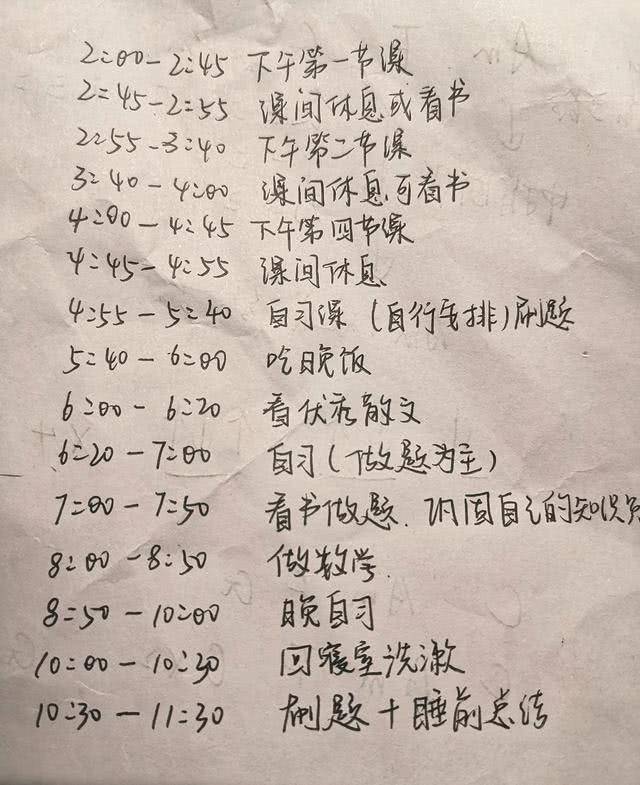 2:00-2:45 下午第一节课
2:45-2:55 课间休息或看书
2:55-3:40 下午第二节课
3:40-4:00 课间休息可看书
4:00-4:45 下午第四节课
4:45-4:55 课间休息
4:55-5:40 自习课(自行安排)刷题
5:40-6:00 吃晚饭
6:00-6:20 看优秀散文
6:20-7:00 自习(做题为主)
7:00-7:50 看书做题.巩固自己的知识
8:00-8:50 做数学
8:50-10:00 晚自习
10:00-10:30 回寝室洗漱
10:30-11:30 刷题+睡前总结